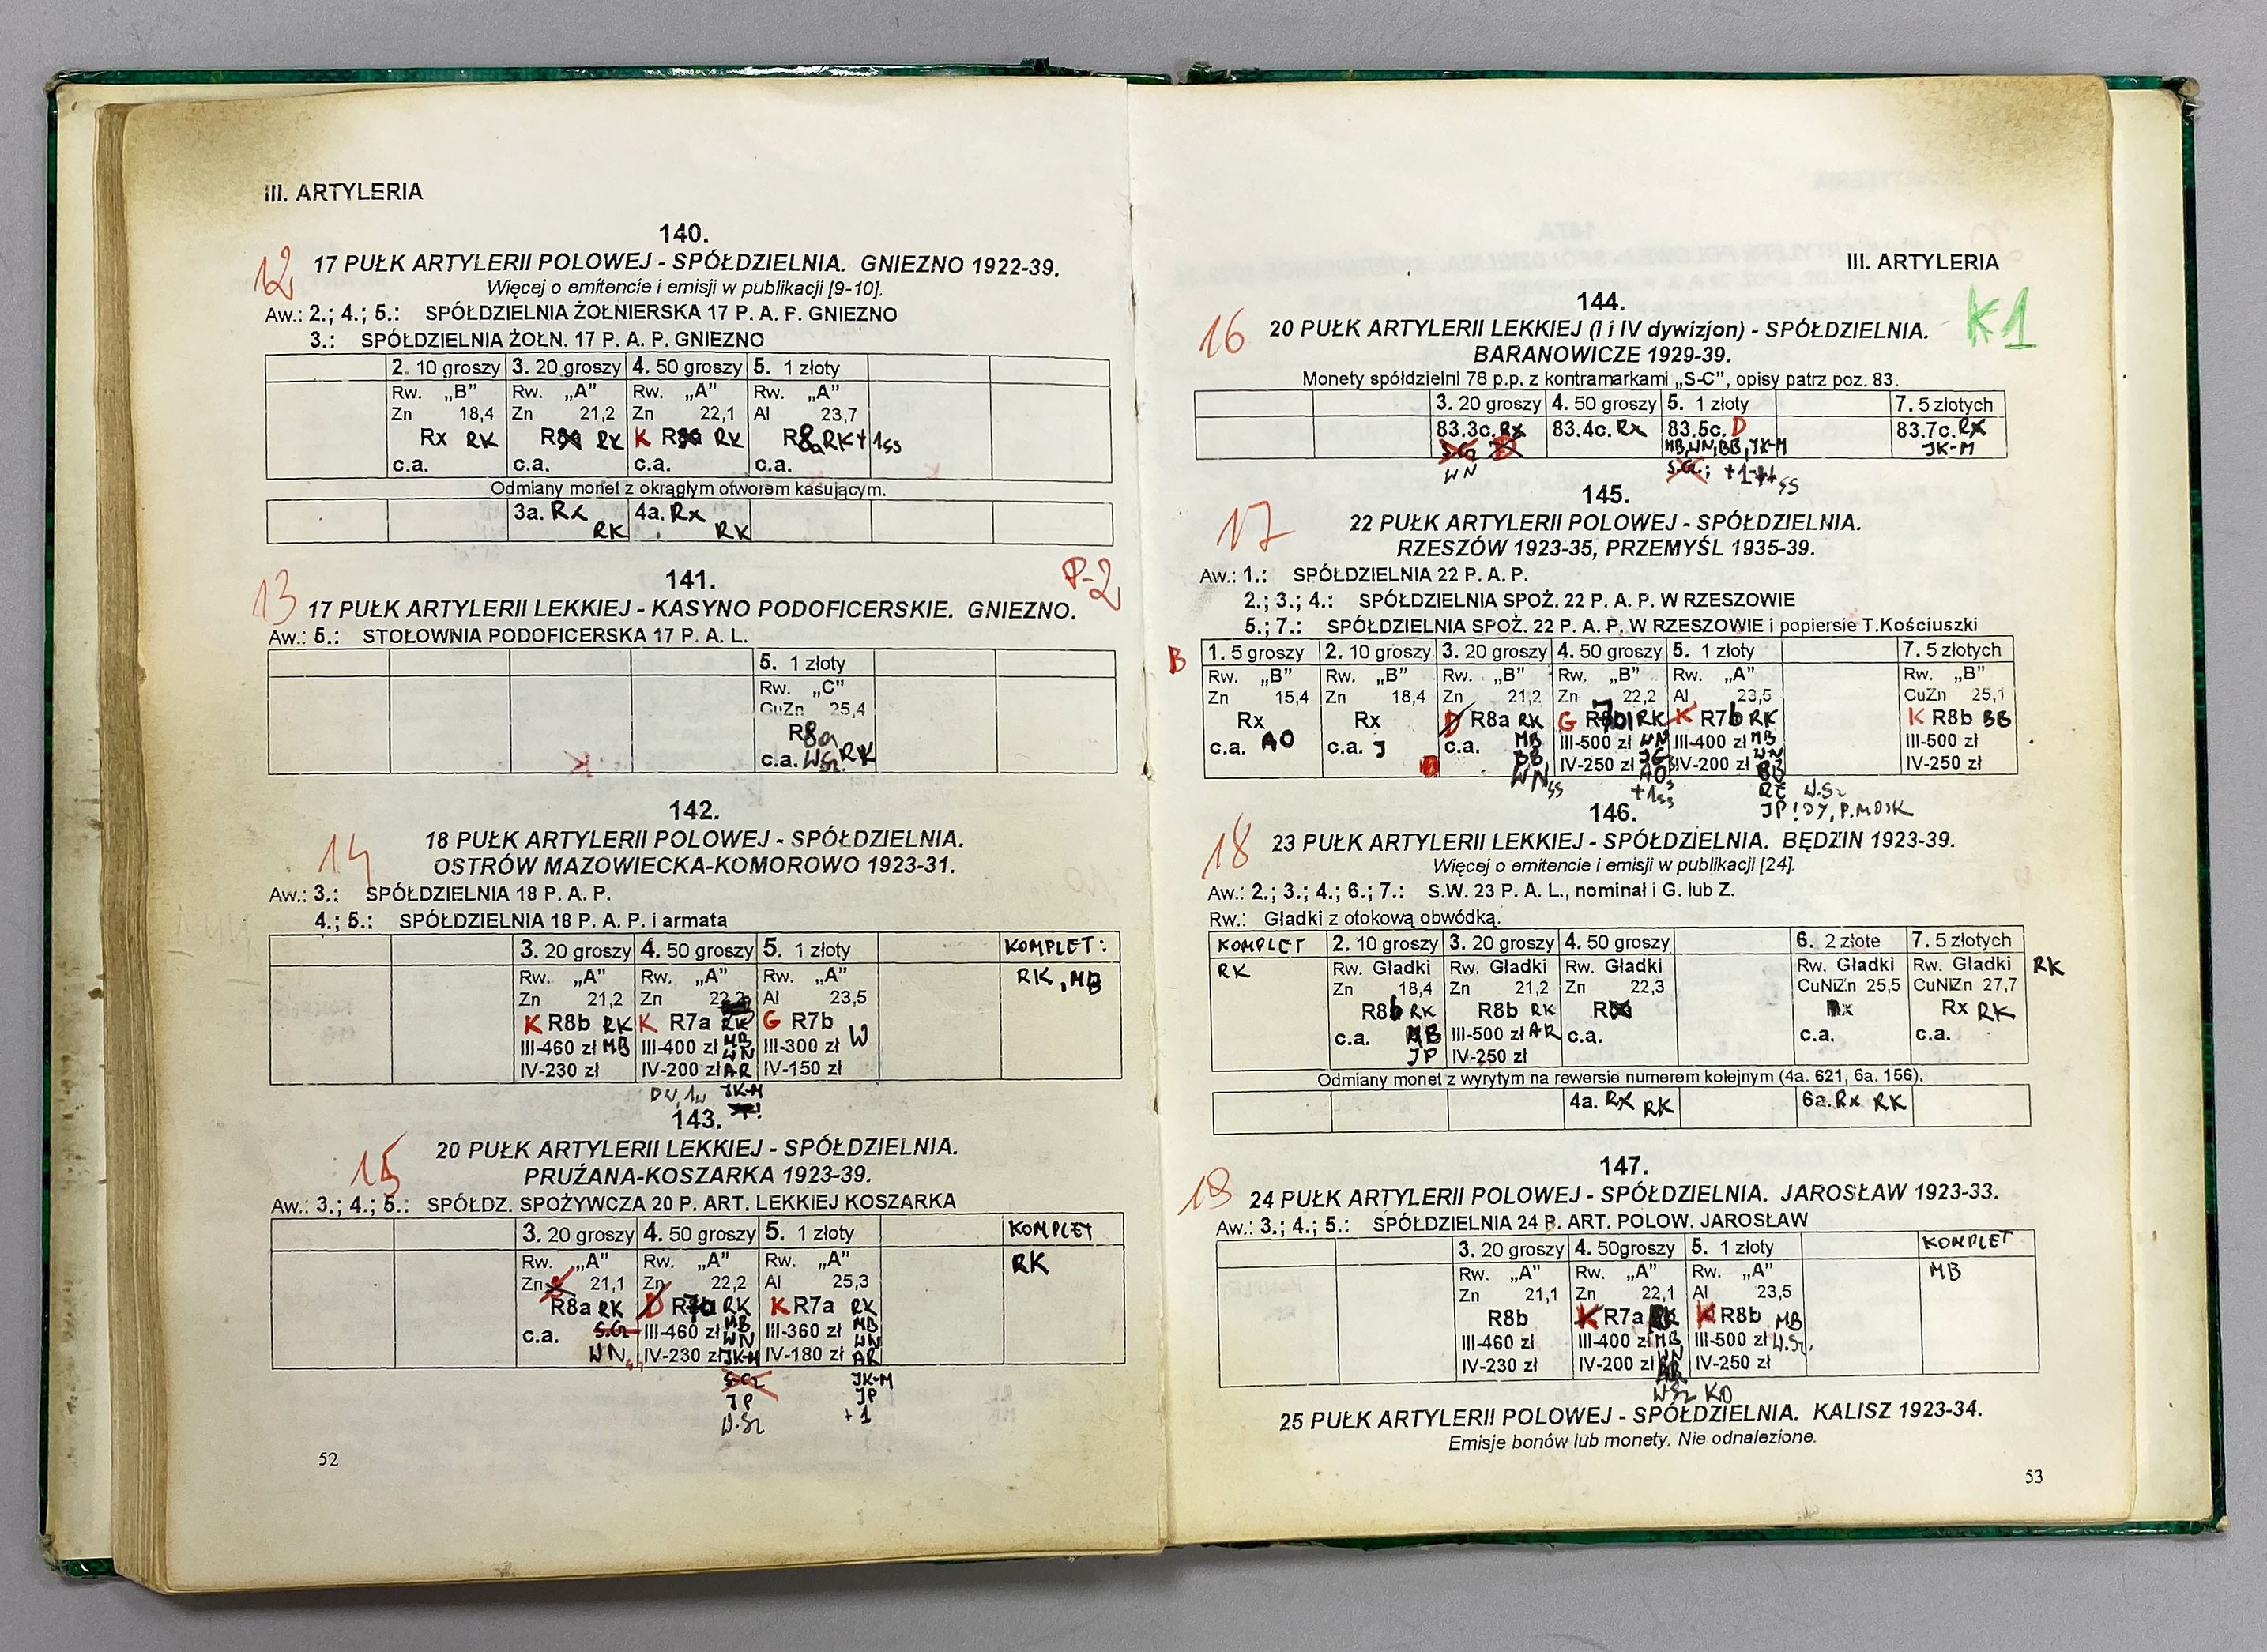 III. ARTYLERIA
140.
12
17 PUŁK ARTYLERII POLOWEJ - SPÓŁDZIELNIA. GNIEZNO 1922-39.
Więcej o emitencie i emisji w publikacji [9-10].
Aw.: 2.; 4.; 5.: SPÓŁDZIELNIA ŻOŁNIERSKA 17 P. A. P. GNIEZNO
3.: SPÓŁDZIELNIA ŻOŁN. 17 P. A. P. GNIEZNO
2. 10 groszy 3. 20 groszy 4. 50 groszy 5. 1 złoty
Rw. „B” Rw. „A” Rw. „A” Rw. „A”
Zn 18,4 Zn 21,2 Zn 22,1 Al 23,7
Rx RK RK K RK R8a RK+1ss
c.a. c.a. c.a. c.a.
Odmiany monet z okrągłym otworem kasującym.
3a. Rx 4a. Rx
RK RK
141.
P-2
13
17 PUŁK ARTYLERII LEKKIEJ - KASYNO PODOFICERSKIE. GNIEZNO.
Aw.: 5.: STOŁOWNIA PODOFICERSKA 17 P. A. L.
5. 1 złoty
Rw. „C”
CuZn 25,4
R8a
c.a. RK
142.
18 PUŁK ARTYLERII POLOWEJ - SPÓŁDZIELNIA.
14
OSTRÓW MAZOWIECKA-KOMOROWO 1923-31.
Aw.: 3.: SPÓŁDZIELNIA 18 P. A. P.
4.; 5.: SPÓŁDZIELNIA 18 P. A. P. i armata
3. 20 groszy 4. 50 groszy 5. 1 złoty KOMPLET:
Rw. „A” Rw. „A” Rw. „A” RK, MB
Zn 21,2 Zn 22,2 Al 23,5
K R8b RK K R7a RK G R7b
III-460 zł MB III-400 zł MB III-300 zł W
WN
IV-230 zł IV-200 zł AR IV-150 zł
JK-M
143.
20 PUŁK ARTYLERII LEKKIEJ - SPÓŁDZIELNIA.
15
PRUŻANA-KOSZARKA 1923-39.
Aw.: 3.; 4.; 5.: SPÓŁDZ. SPOŻYWCZA 20 P. ART. LEKKIEJ KOSZARKA
3. 20 groszy 4. 50 groszy 5. 1 złoty KOMPLET
Rw. „A” Rw. „A” Rw. „A” RK
Zn 21,1 Zn 22,2 Al 25,3
R8a RK D RK K R7a RK
MB MB
c.a. III-460 zł WN III-360 zł WN
WN IV-230 zł JK-M IV-180 zł AR
JK-M
JP JP
W.Sz +1
52
III. ARTYLERIA
144.
K1
16
20 PUŁK ARTYLERII LEKKIEJ (I i IV dywizjon) - SPÓŁDZIELNIA.
BARANOWICZE 1929-39.
Monety spółdzielni 78 p.p. z kontramarkami „S-C”, opisy patrz poz. 83.
3. 20 groszy 4. 50 groszy 5. 1 złoty 7. 5 złotych
83.3c. Rx 83.4c. Rx 83.5c. D 83.7c. Rx
MB, WN, BB, JK-M JK-M
WN
145.
17
22 PUŁK ARTYLERII POLOWEJ - SPÓŁDZIELNIA.
RZESZÓW 1923-35, PRZEMYŚL 1935-39.
Aw.: 1.: SPÓŁDZIELNIA 22 P. A. P.
2.; 3.; 4.: SPÓŁDZIELNIA SPOŻ. 22 P. A. P. W RZESZOWIE
5.; 7.: SPÓŁDZIELNIA SPOŻ. 22 P. A. P. W RZESZOWIE i popiersie T.Kościuszki
B 1. 5 groszy 2. 10 groszy 3. 20 groszy 4. 50 groszy 5. 1 złoty 7. 5 złotych
Rw. „B” Rw. „B” Rw. „B” Rw. „B” Rw. „A” Rw. „B”
Zn 15,4 Zn 18,4 Zn 21,2 Zn 22,2 Al 23,5 CuZn 25,1
Rx Rx D R8a RK G RK K R7b RK K R8b BB
c.a. AO c.a. J c.a. MB III-500 zł WN III-400 zł MB III-500 zł
BB JG WN
IV-250 zł IV-200 zł IV-250 zł
WN ss AO BB
+1ss RZ W.Sz
146.
18
23 PUŁK ARTYLERII LEKKIEJ - SPÓŁDZIELNIA. BĘDZIN 1923-39.
Więcej o emitencie i emisji w publikacji [24].
Aw.: 2.; 3.; 4.; 6.; 7.: S.W. 23 P. A. L., nominał i G. lub Z.
Rw.: Gładki z otokową obwódką.
KOMPLET 2. 10 groszy 3. 20 groszy 4. 50 groszy 6. 2 złote 7. 5 złotych
RK Rw. Gładki Rw. Gładki Rw. Gładki Rw. Gładki Rw. Gładki RK
Zn 18,4 Zn 21,2 Zn 22,3 CuNiZn 25,5 CuNiZn 27,7
R8b RK R8b RK Rx Rx RK
c.a. MB III-500 zł AR c.a. c.a. c.a.
JP IV-250 zł
Odmiany monet z wyrytym na rewersie numerem kolejnym (4a. 621, 6a. 156).
4a. Rx RK 6a. Rx RK
147.
24 PUŁK ARTYLERII POLOWEJ - SPÓŁDZIELNIA. JAROSŁAW 1923-33.
Aw.: 3.; 4.; 5.: SPÓŁDZIELNIA 24 P. ART. POLOW. JAROSŁAW
3. 20 groszy 4. 50groszy 5. 1 złoty KOMPLET
Rw. „A” Rw. „A” Rw. „A” MB
Zn 21,1 Zn 22,1 Al 23,5
R8b K R7a RK K R8b MB
III-460 zł III-400 zł MB III-500 zł W.Sz.
WN
IV-230 zł IV-200 zł IV-250 zł
WSz KO
25 PUŁK ARTYLERII POLOWEJ - SPÓŁDZIELNIA. KALISZ 1923-34.
Emisje bonów lub monety. Nie odnalezione.
53